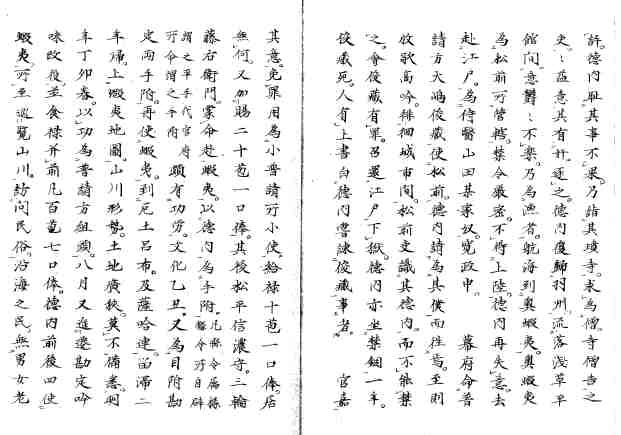 許。德內恥其事不果。乃詣其墳寺。求為僧。寺僧告之
吏。吏益意其有奸。逐之。德內復歸羽州。流落淺草平
館間。意鬱鬱不樂。乃為漁者航海到奧蝦夷。奧蝦夷
為松前所管轄。禁令嚴密。不得上陸。德內再失意。去
赴江戶。為侍醫山田某家奴。寬政中。 幕府命普
請方大嶋俊藏使松前。德內請為其僕而往焉。至則
放歌高吟。徘徊城市間。松前吏識其德內。而不能禁
之。會俊藏有罪。召還江戶下獄。德內亦坐禁錮一年。
俊藏死。人有上書白德內嘗諫俊藏事者。 官嘉
其意。免罪用為小普請所小使。給祿十苞一口俸。居
無何。又加賜二十苞一口俸。其後松平信濃守。三輪
藤右衛門。蒙命赴蝦夷。以德內為手附。凡縣令屬祿縣令所自辟
謂之平手代官府所命謂之手附 頗有功勞。文化乙丑。又為目附勘
定兩手附。再使蝦夷。到厄土呂布。及薩哈連。留滯二
年歸。上蝦夷地圖。山川形勢。土地廣狹。莫不備悉。明
年丁卯春。以功為普請方組頭。八月又進遷勘定吟
味改役。並食祿并前凡百苞七口俸。德內前後四使
蝦夷。所至巡覽山川。訪問民俗。沿海之民。無男女老